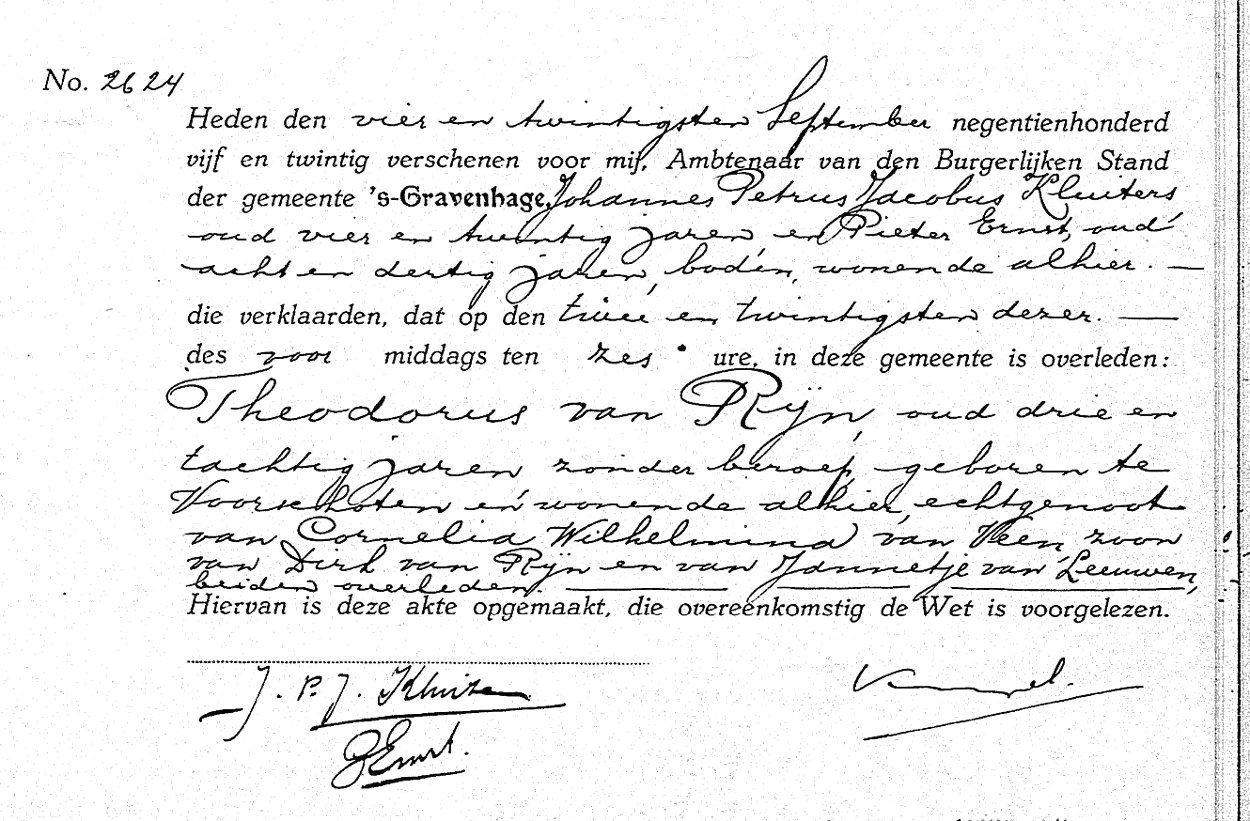 No. 2624
Heden den vier en twintigsten September negentienhonderd
vijf en twintig verschenen voor mij, Ambtenaar van den Burgerlijken Stand
der gemeente 's-Gravenhage, Johannes Petrus Jacobus Kluiters
oud vier en twintig jaren, en Pieter Ernst, oud
acht en dertig jaren, boden, wonende alhier. —
die verklaarden, dat op den twee en twintigsten dezer. —
des voor middags ten zes ure, in deze gemeente is overleden:
Theodorus van Rijn, oud drie en
tachtig jaren zonder beroep, geboren te
Voorschoten en wonende alhier, echtgenoot
van Cornelia Wilhelmina van Veen, zoon
van Dirk van Rijn en van Jannetje van Leeuwen,
beiden overleden.
Hiervan is deze akte opgemaakt, die overeenkomstig de Wet is voorgelezen.
J. P. J.
P Ernst.